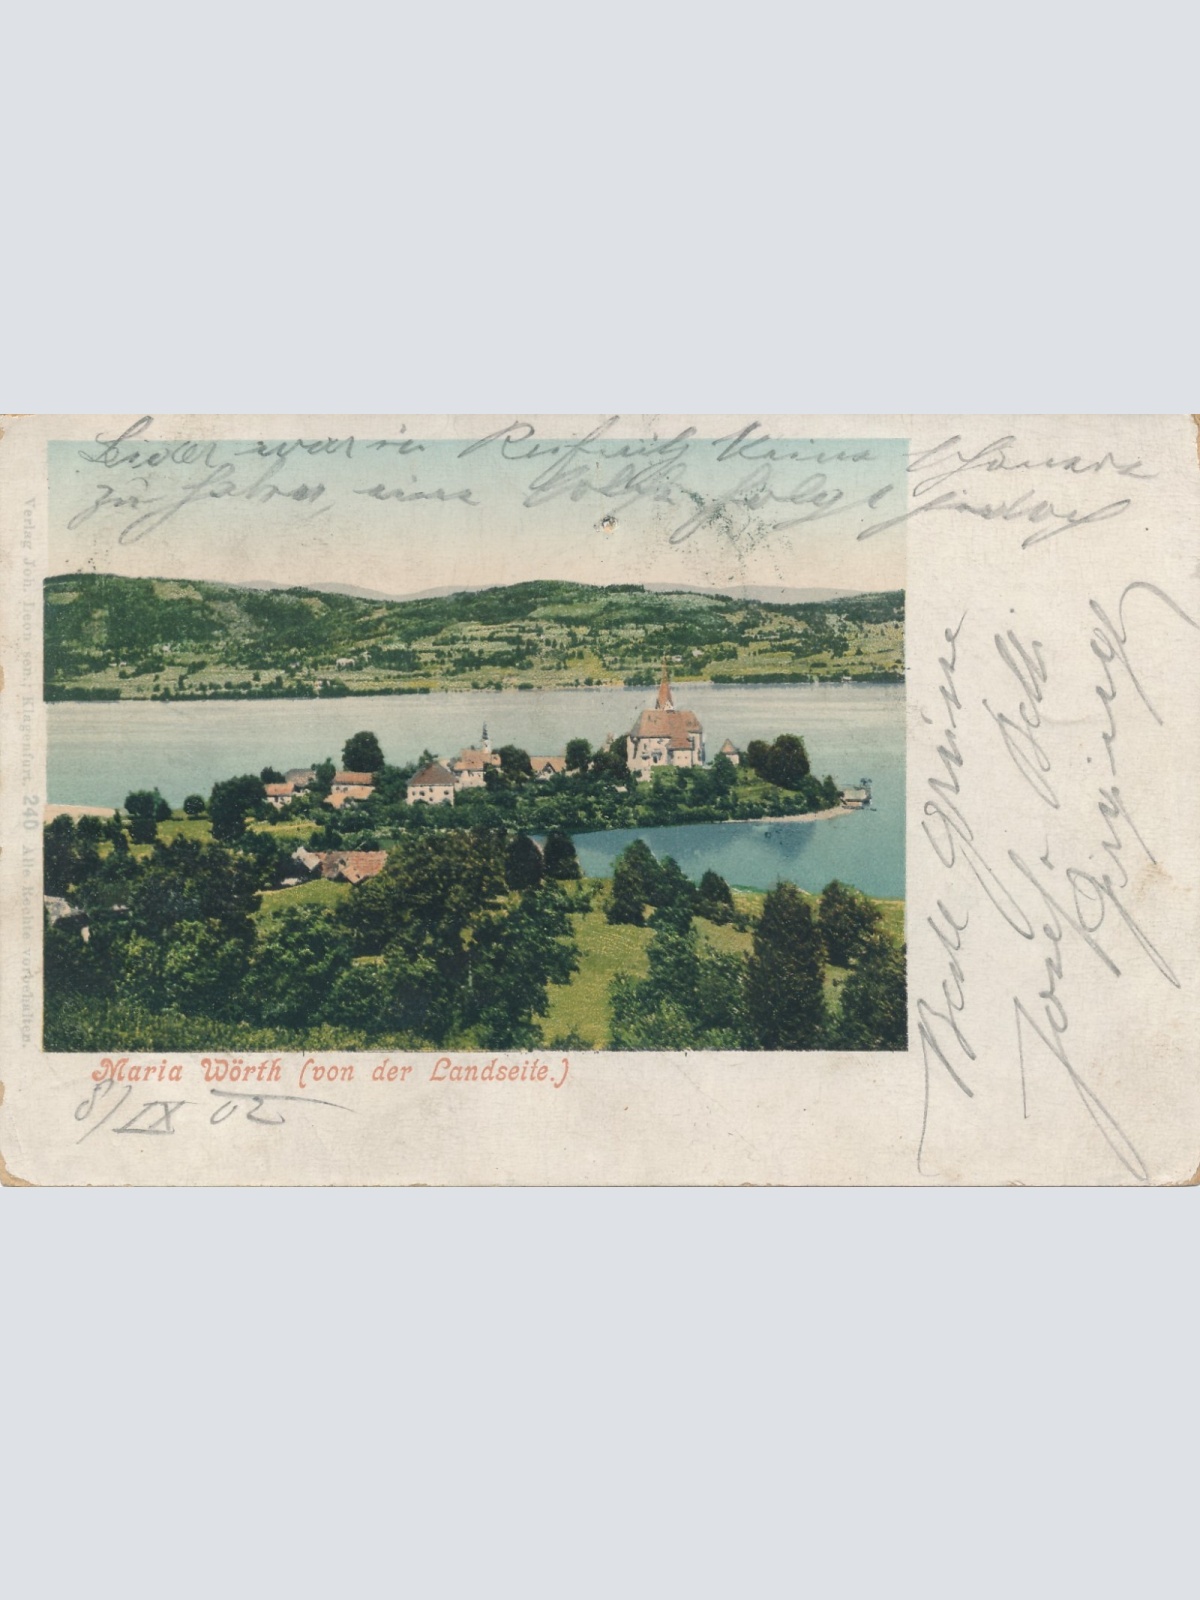 Leider war in Reifnitz keine schönere
zu haben, eine solche folgt jedoch
Maria Wörth (von der Landseite.)
8/IX 02
Verlag Joh. Leon sen. Klagenfurt. 240 Alle Rechte vorbehalten.
Beste Grüsse
Josef